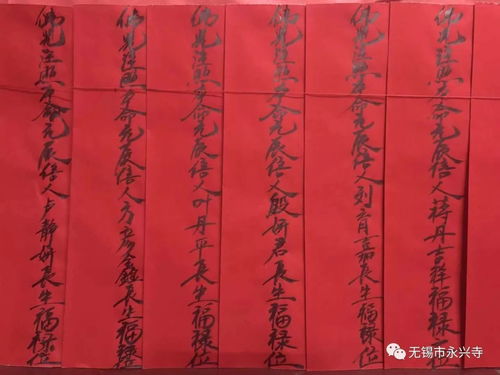 佛光注照本命元辰信人蒋丹吉祥福禄位
佛光注照本命元辰信人刘育嘉長生福禄位
佛光注照本命元辰信人殷妍君長生福禄位
佛光注照本命元辰信人叶丹平長生福禄位
佛光注照本命元辰信人方彦鑫長生福禄位
佛光注照本命元辰信人卢静妍長生福禄位
无锡市永兴寺